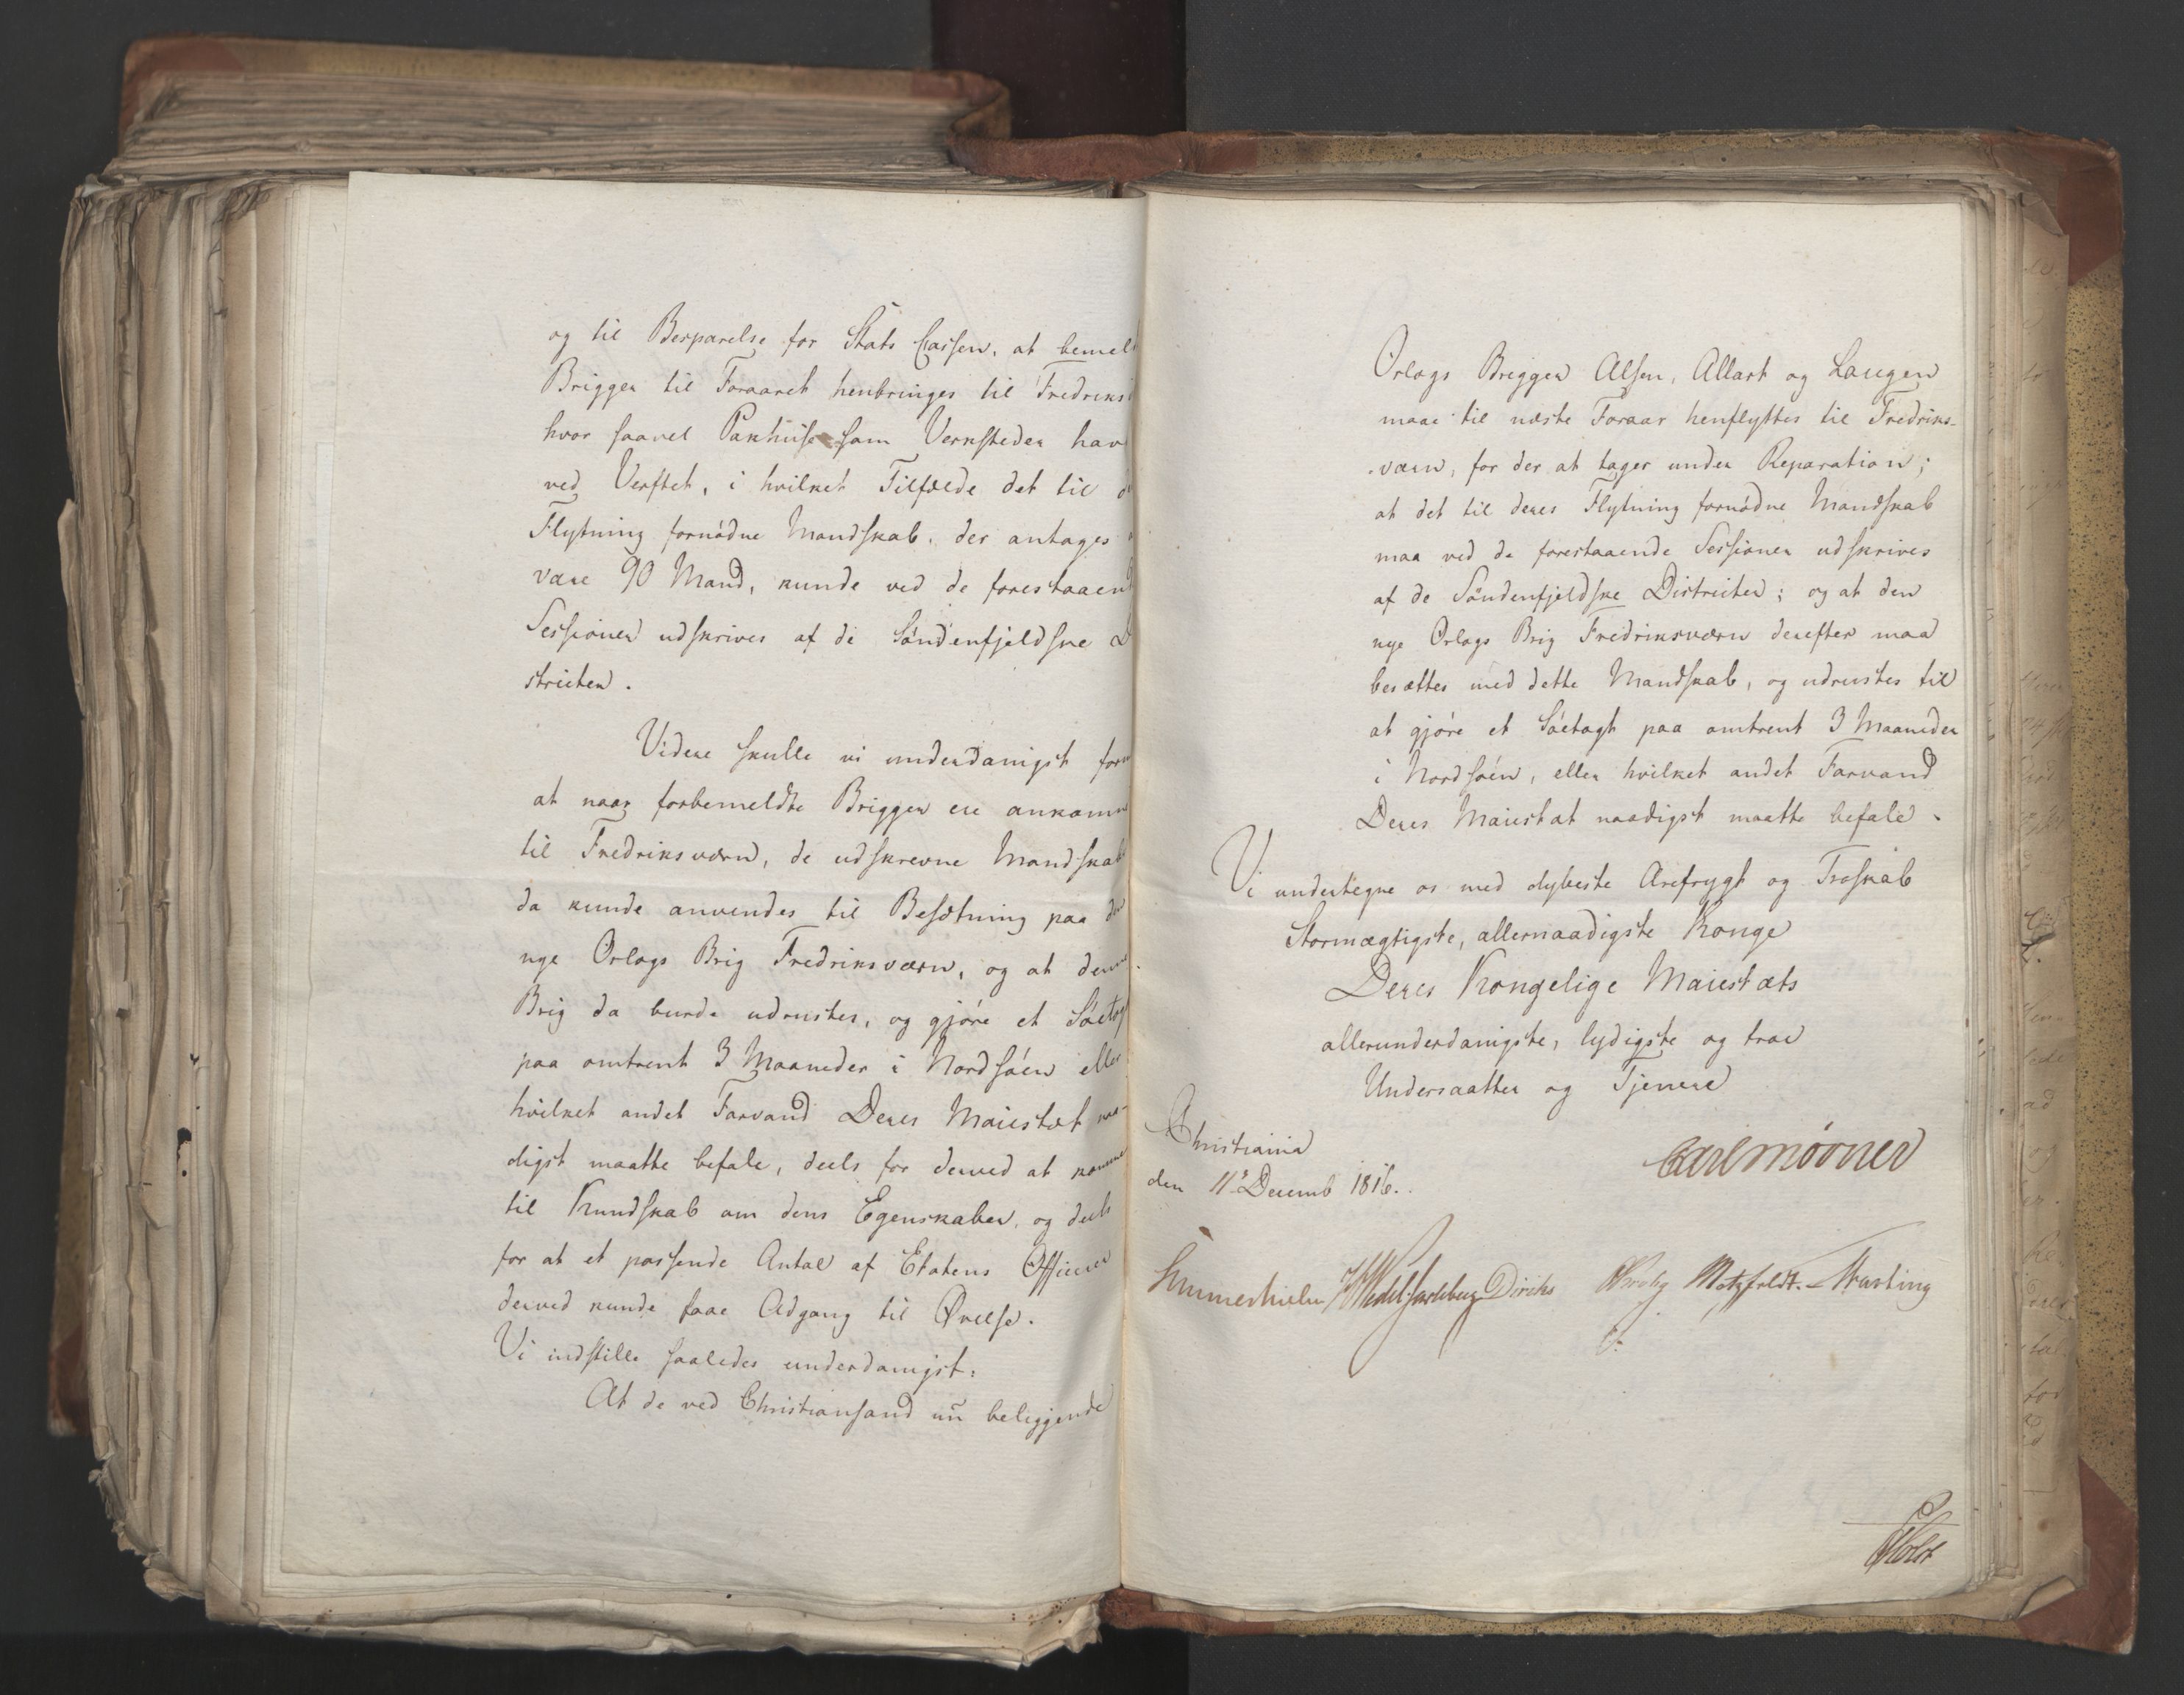 og til Besparelse for Stats Cassen, at bemel
Brigger til Foraaret henbringes til Fredriks
hvor saavel Pakhuse som Verksteder hav
ved Verftet, i hvilket Tilfælde det til d
Flytning fornødne Mandskab, der antages
være 90 Mand, kunde ved de forestaaend
Sessioner udskrives af de Søndenfjeldske D
stricter.
Videre skulle vi underdanigst form
at naar forbemeldte Brigger ere ankomn
til Fredriksværn, de udskrevne Mandskab
da kunde anvendes til Besætning paa den
nye Orlogs Brig Fredriksværn, og at denne
Brig da burde udrustes, og gjøre et Søetog
paa omtrent 3 Maaneder i Nordsøen eller
hvilket andet Farvand Deres Maiestæt naa-
digst maatte befale, deels for derved at komme
til Kundskab om dens Egenskaber, og deels
for at et passende Antal af Etatens Officerer
derved kunde faae Adgang til Øvelse.
Vi indstille saaledes underdanigst:
At de ved Christiansand nu beliggende
Orlogs Brigger Alsen, Allart og Laugen
maae til næste Foraar henflyttes til Fredriks-
værn, for der at tages under Reparation;
at det til deres Flytning fornødne Mandskab
maa ved de forestaaende Sessioner udskrives
af de Søndenfjeldske Districter; og at den
nye Orlogs Brig Fredriksværn derefter maa
besættes med dette Mandskab, og udrustes til
at gjøre et Søetogt paa omtrent 3 Maaneder
i Nordsøen, eller hvilket andet Farvand
Deres Maiestæt naadigst maatte befale.
Vi undertegne os med dybeste Ærefrygt og Troskab
Stormægtigste, allernaadigste Konge
Deres Kongelige Maiestæts
allerunderdanigste, lydigste og troe
Undersaatter og Tjenere
Christiania
den 11te Decemb 1816.
Carl Mörner
Sommerhielm HWedel Jarlsberg Diriks Krohg Motzfeldt. Fasting
Holst